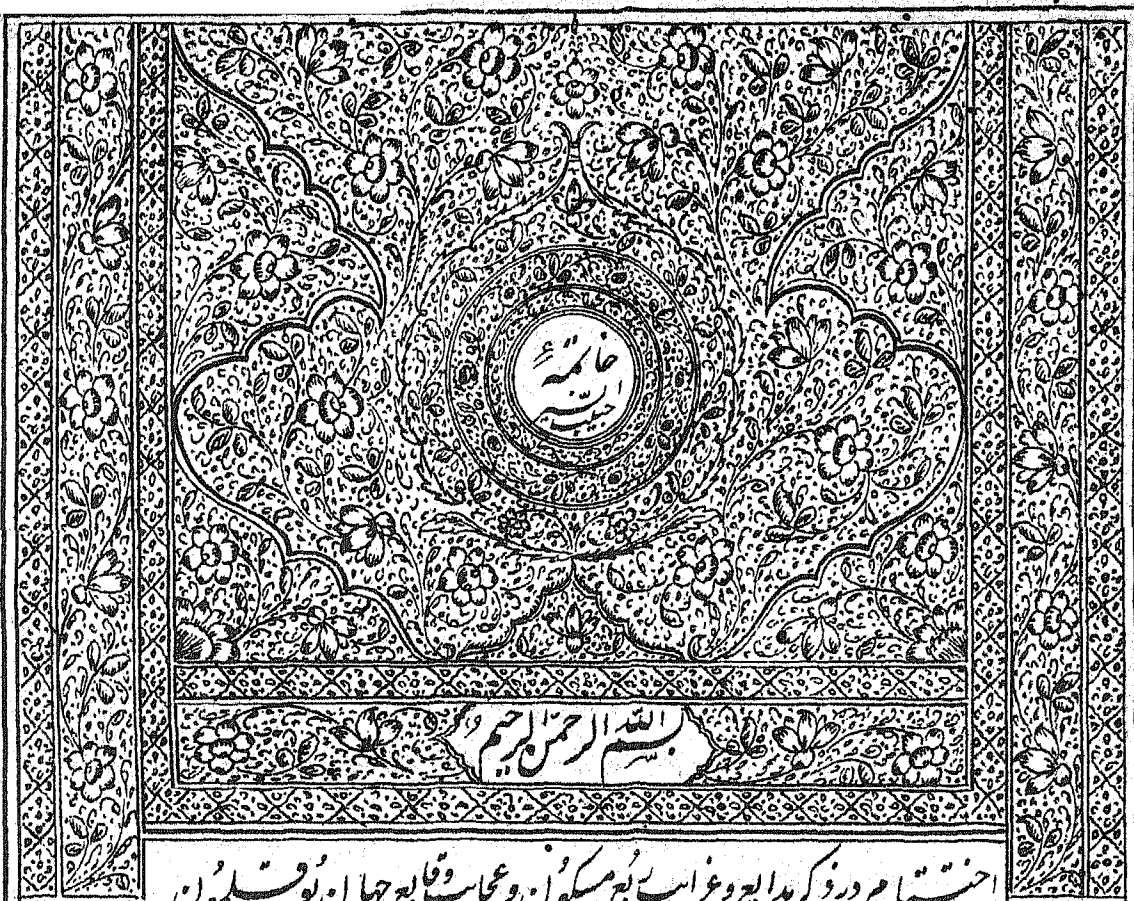 خاتمهٔ
حبیب
بسم الله الرحمن الرحیم
اختتام در ذکر بدایع و غرایب ربع مسکون و عجایب وقایع جهان بوقلمون